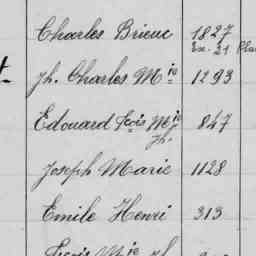 Charles Brieuc 1827
Ex. 21
Jh. Charles Mie 1293
Edouard Fcois Mie 847
Jh.
Joseph Marie 1128
Emile Henri 313
Fcois Mie Jh